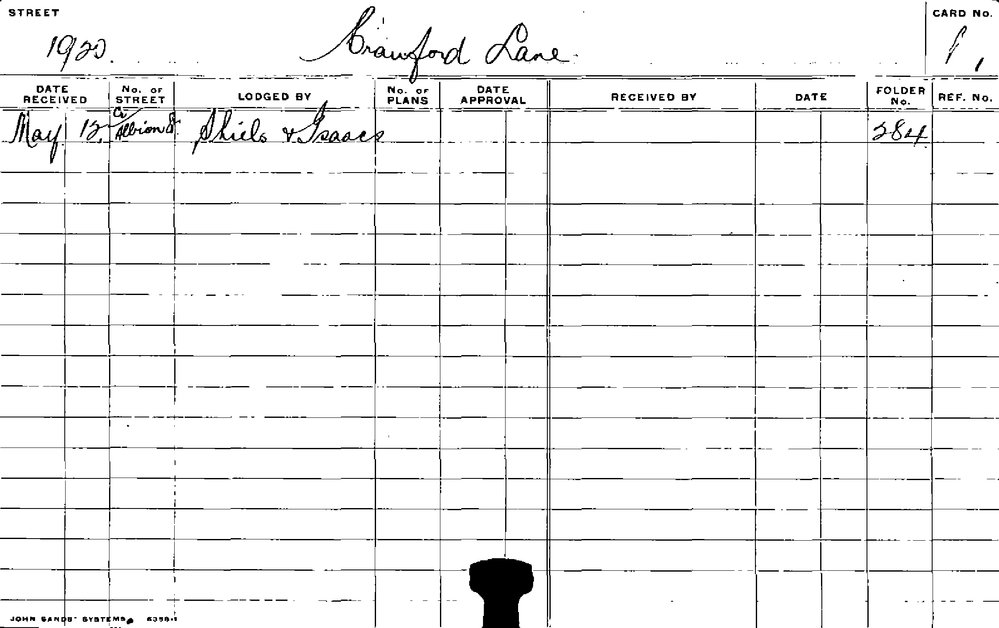 STREET
CARD No.
1920. Crawford Lane. 1,
DATE RECEIVED No. OF STREET LODGED BY No. OF PLANS DATE APPROVAL RECEIVED BY DATE FOLDER No. REF. No.
May 12 Albion St Shiels & Isaacs 284
JOHN SANDS' SYSTEMS